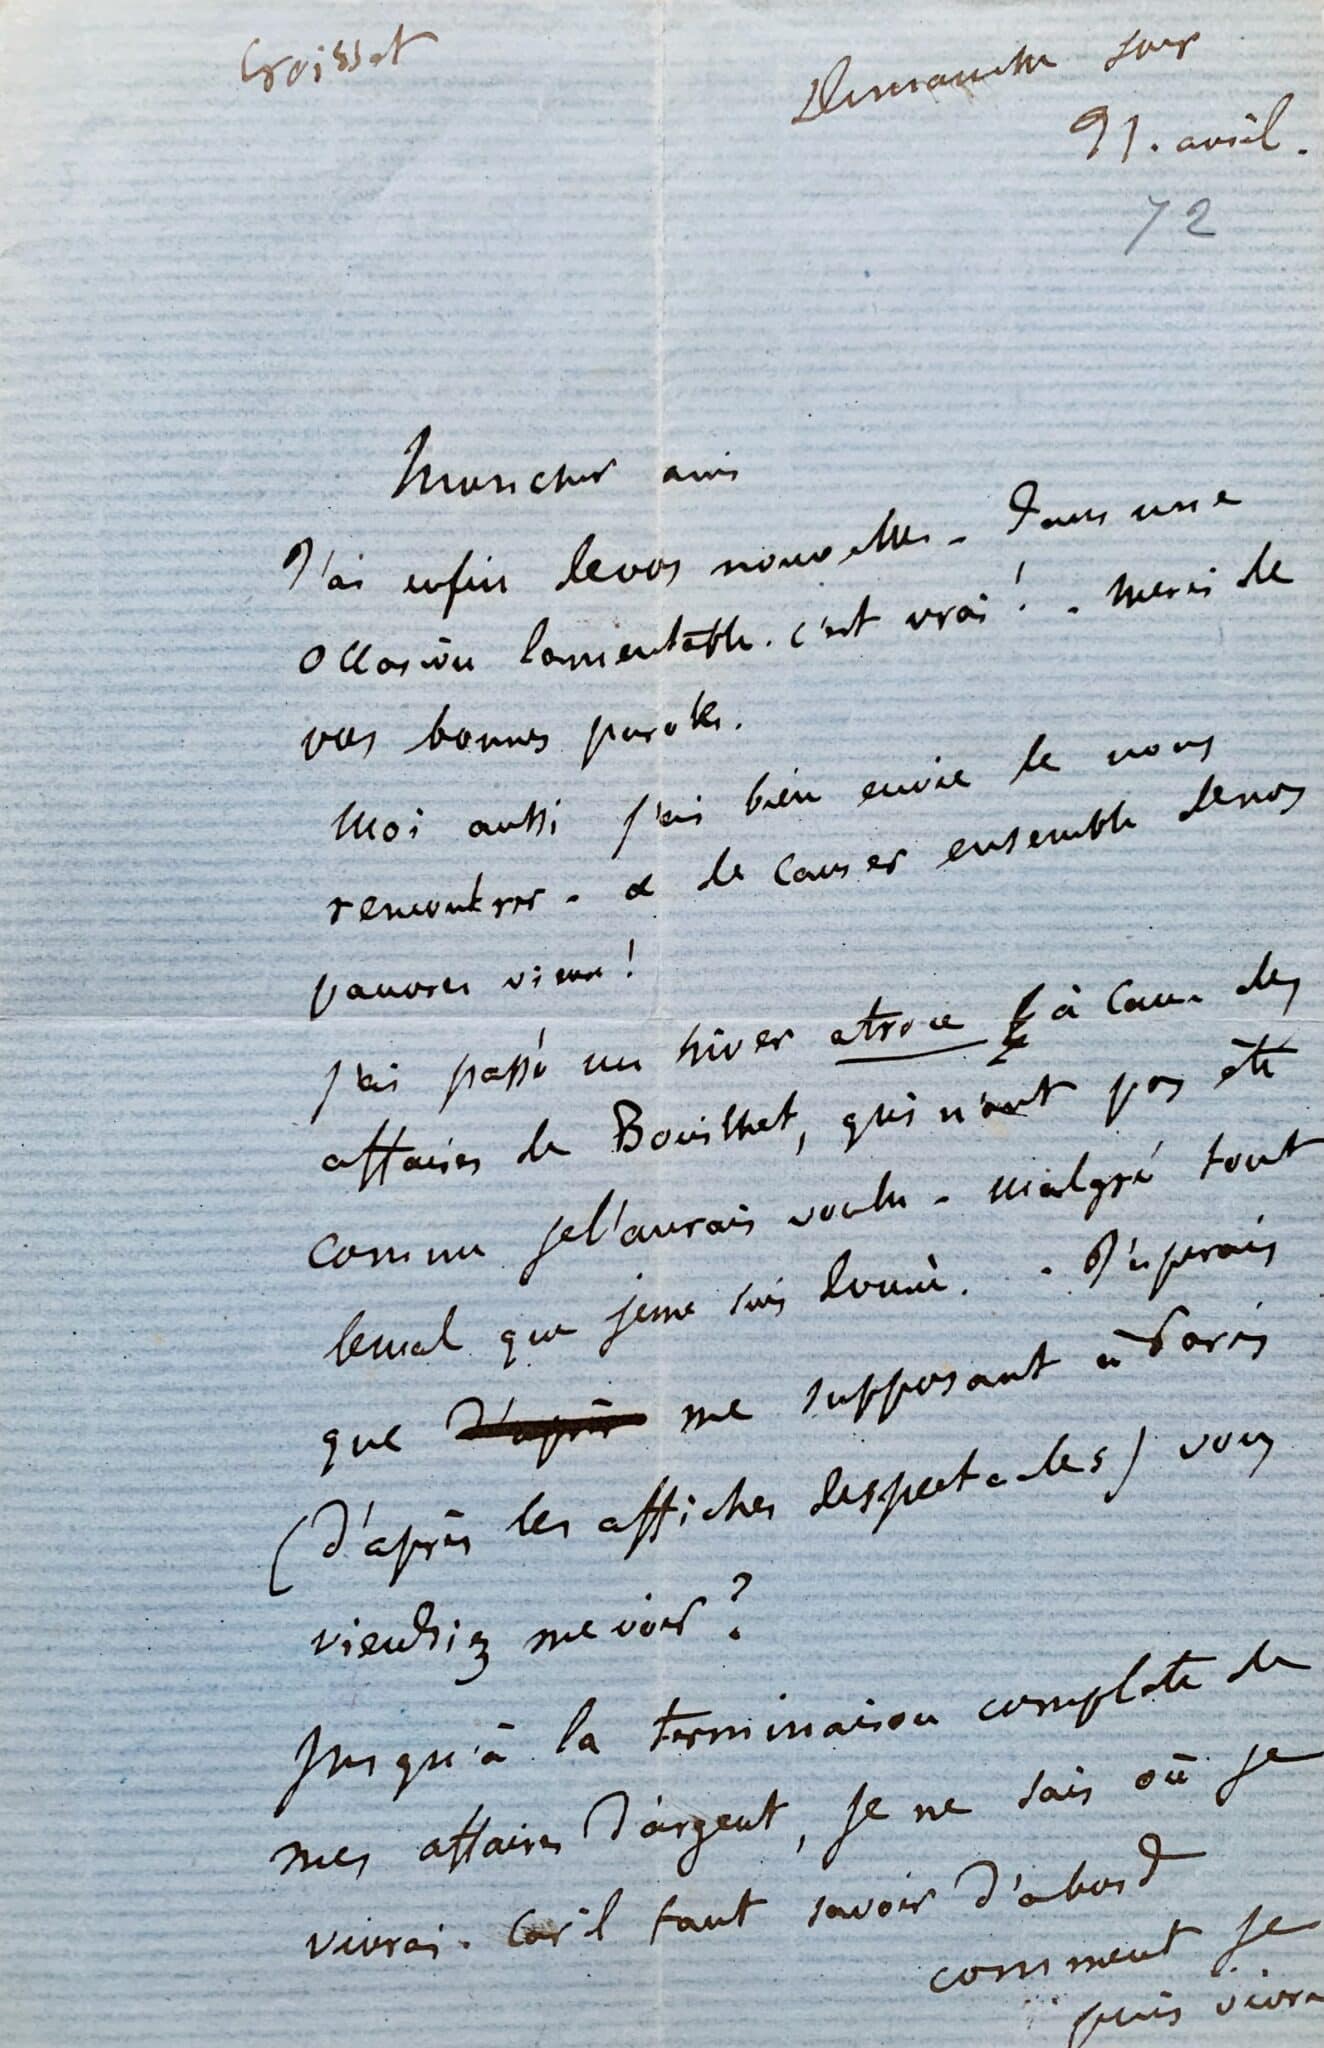 Croisset
Dimanche soir
21. avril.
72
Mon cher ami
J'ai enfin de vos nouvelles - Dans une
occasion lamentable. c'est vrai ! - Merci de
vos bonnes paroles.
Moi aussi j'ai bien envie de nous
rencontrer - & de causer ensemble de nos
pauvres vieux !
J'ai passé un hiver atroce à cause des
affaires de Bouilhet, qui n'ont pas été
comme je l'aurais voulu - malgré tout
le mal que je me suis donné. - J'espérais
que d'après me supposant à Paris
(d'après les affiches de spectacles) vous
viendriez me voir ?
Jusqu'à la terminaison complète de
mes affaires d'argent, je ne sais où je
vivrai. Car il faut savoir d'abord
comment je
puis vivre